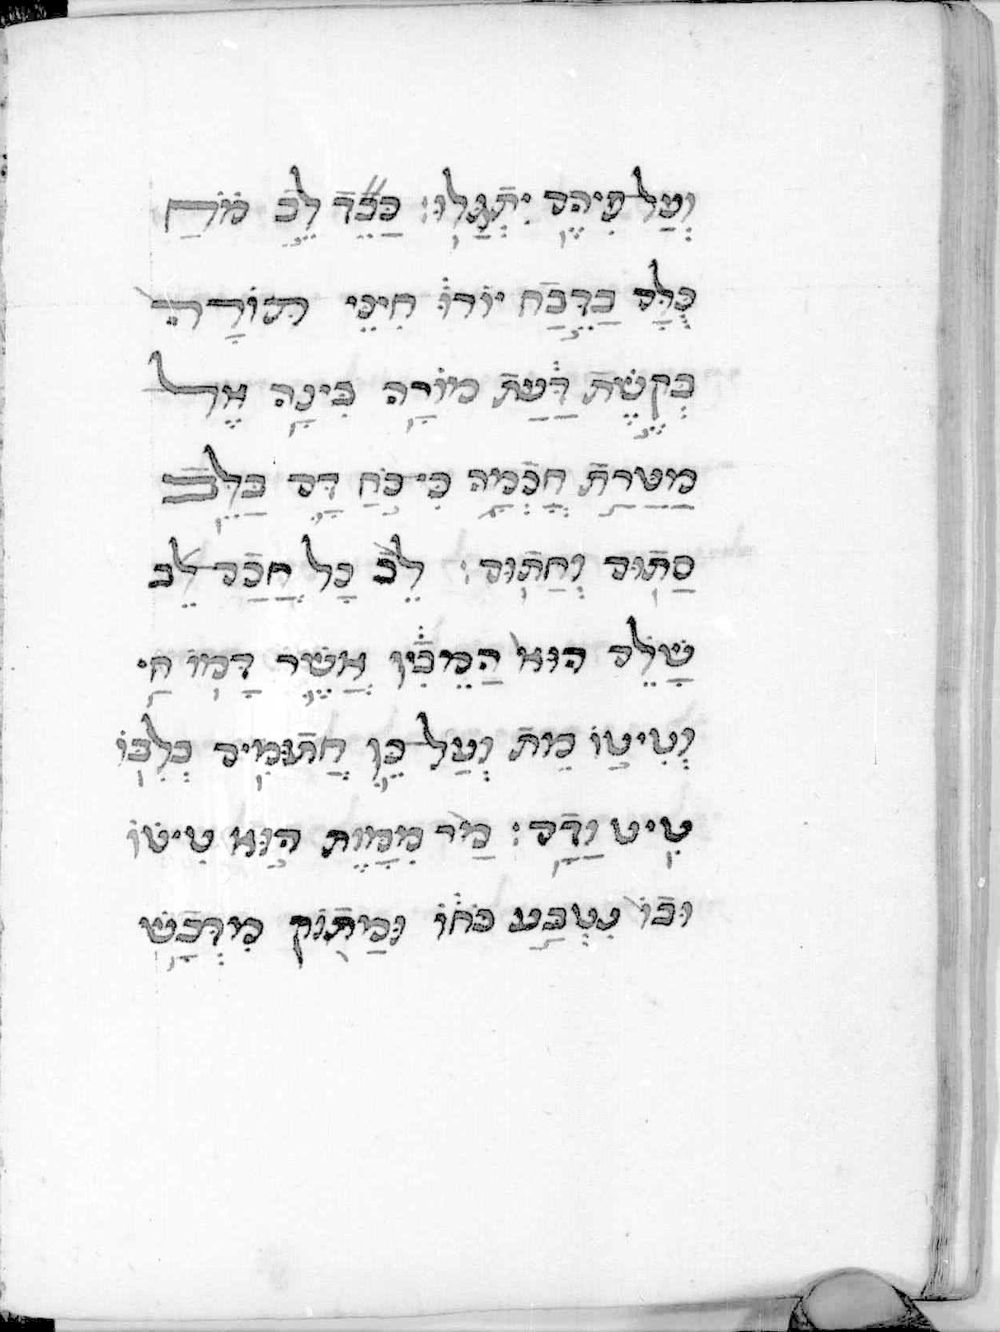 וְעַל פִּיהֶם יִתְגַּלוּ: כַּבֵד לֵב מֹחַ
כֻּלָּם יוֹרוּ תוֹרָה
בְּקֶשֶׁת דַּעַת מוֹרָה בִּינָה אֶל
מַטַרַת חָכְמָה כִּי כֹחַ דָּם בַּלֵּב
סַתוּם וְחַתוּם: לֵב כָּל חֲכַם לֵב
שָׁלֵם הוּא הַמֵּבִין אֲשֶׁר דָּמוֹ חַי
וְטִיטוֹ מֵת וְעַל כֵּן חֲתוּמִים בְּלִבּוֹ
טִיט וַדָם: מַר מִמָּוֶת הוּא טִיטוֹ
וּבוֹ נִטְבַּע כֹּחוֹ וּמַתוֹק מִדְּבַשׁ